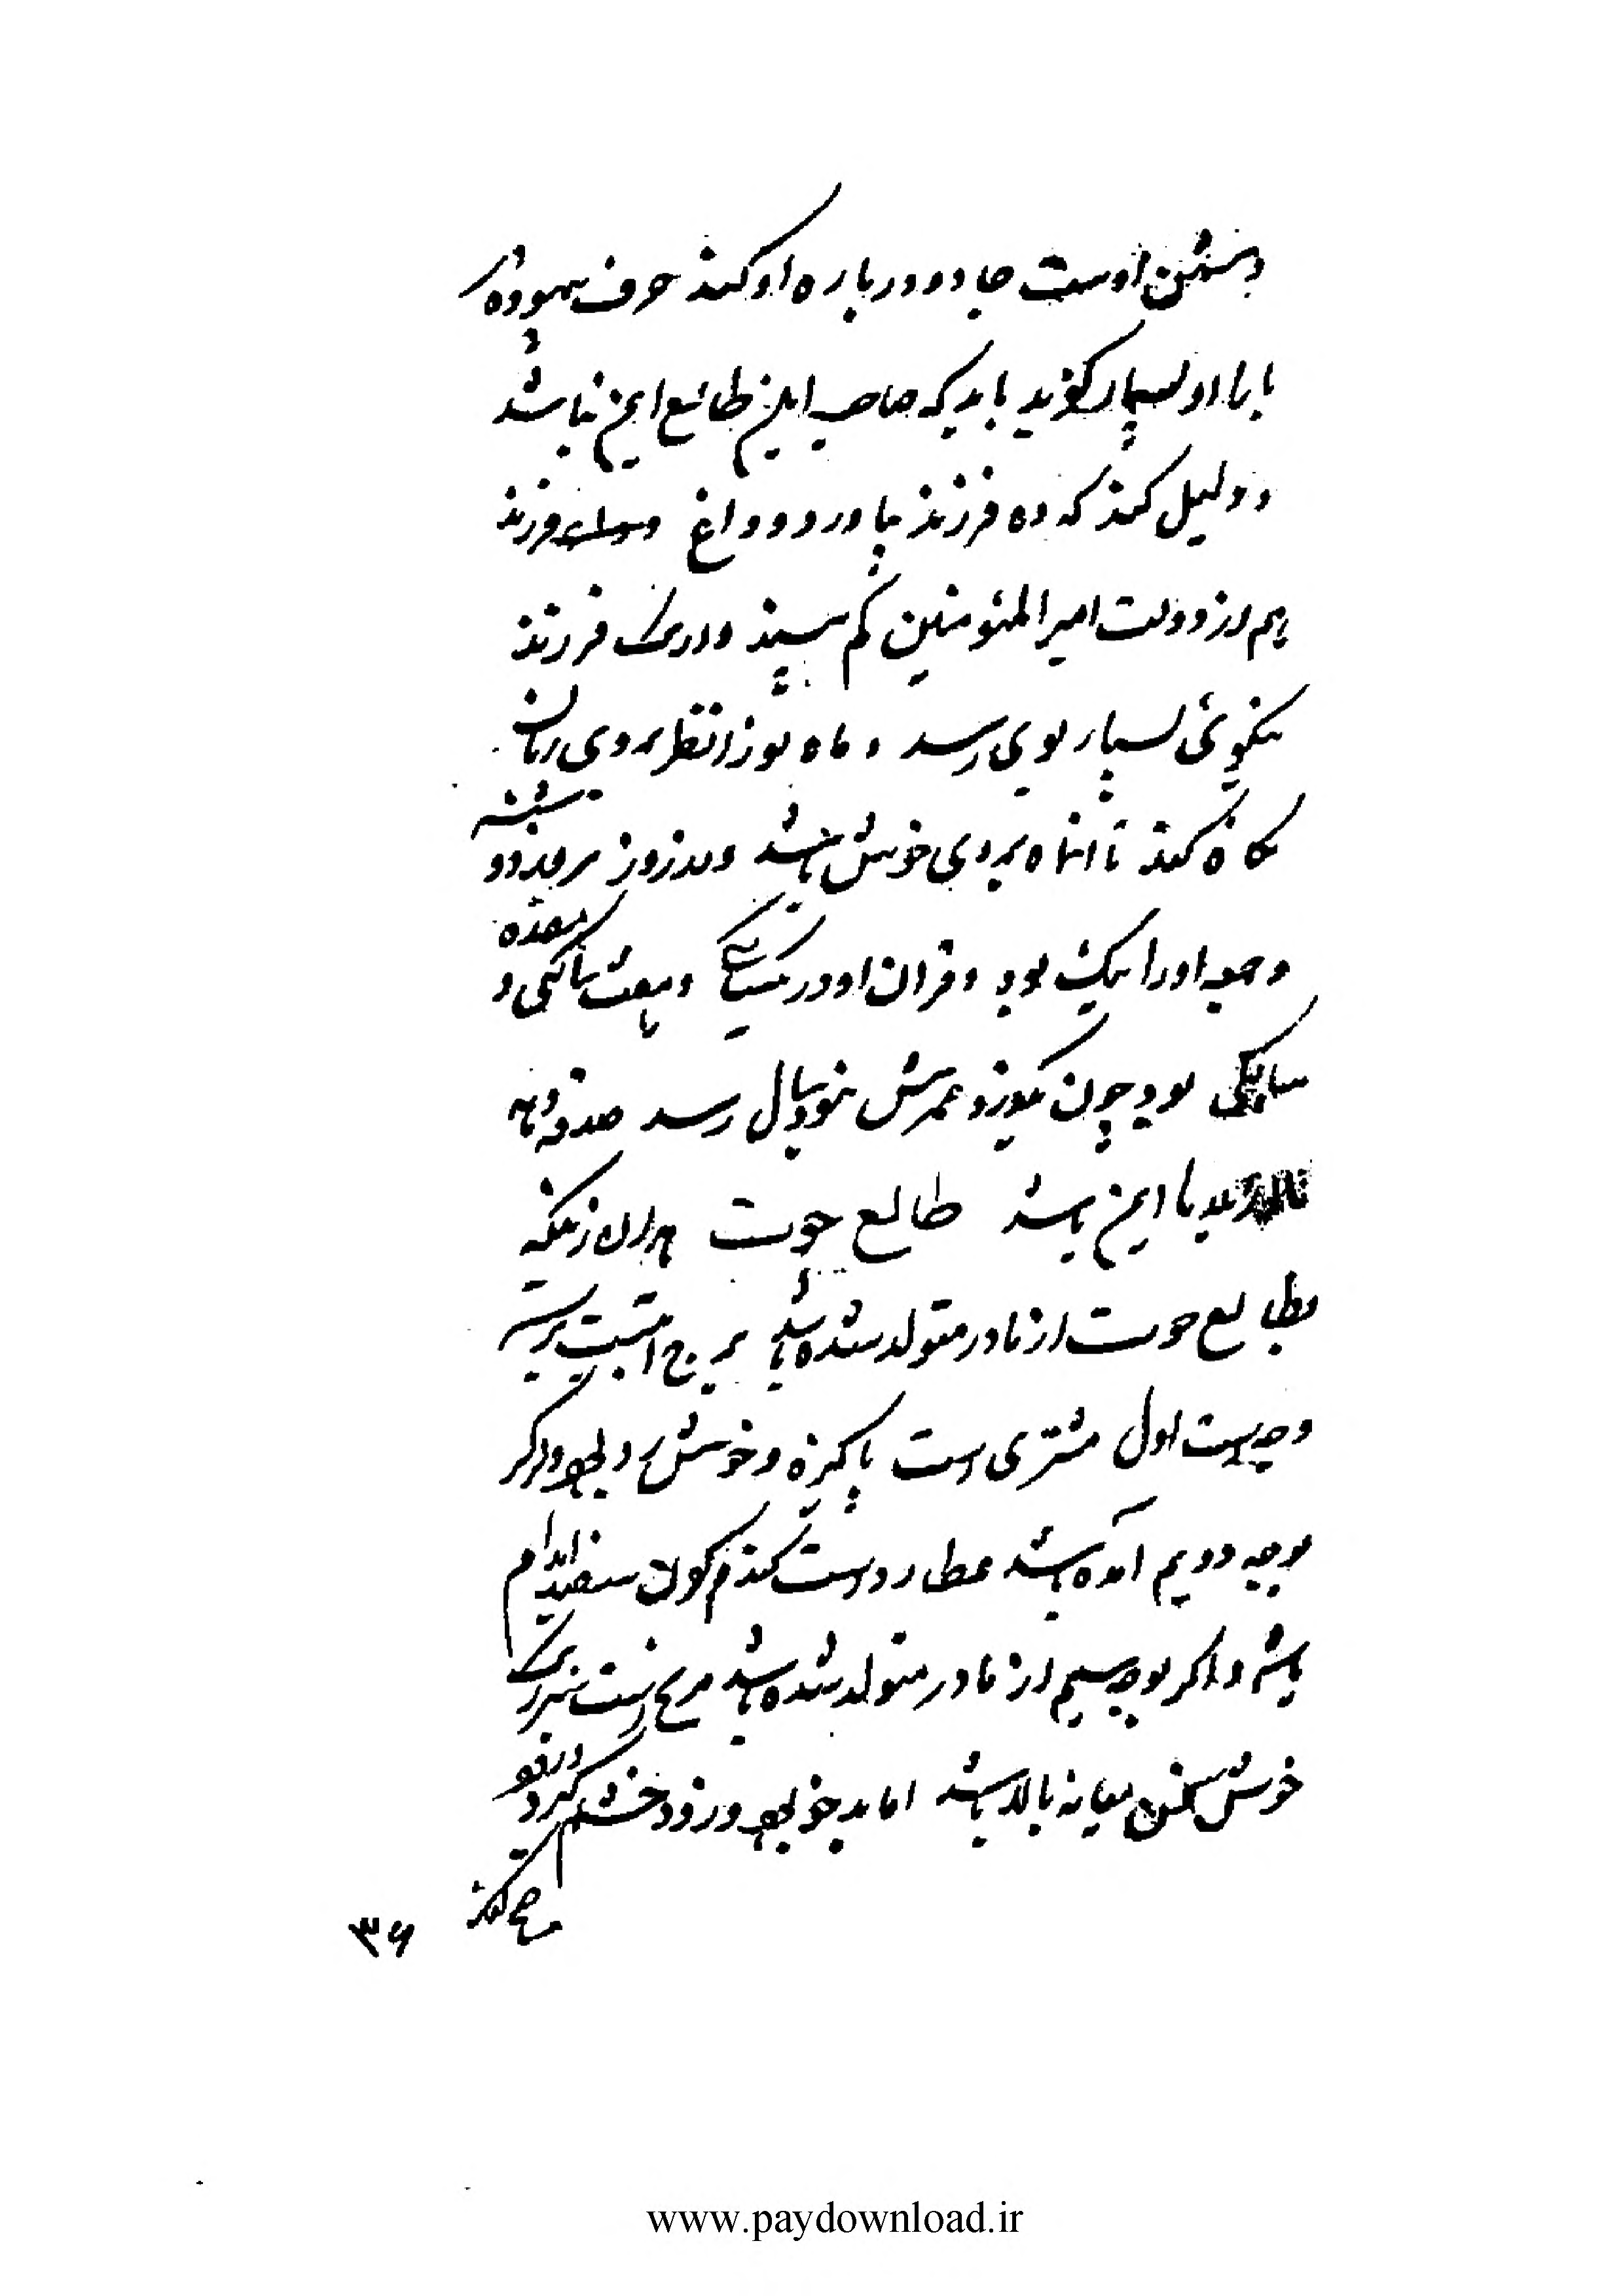 دشمن اوست جادو در باره او کند حرف بیهوده
با او بسیار گوید باید که صاحب این طالع ایمن نباشد
و دلیل کند که ده فرزند بیاورد و داغ فرزند
هم از دولت امیرالمئومنین کم بیند و از یک فرزند
نیکوئی بسیار بوی رسد و ماه نو را نظر بروی زنان
نگاه کند تا آنماه بروی خوش باشد و در روز دو شنبه
وجه او را نیک بود و قران او در یکسالگی و هفت سالگی و هفده
سالگی بود چون بگذرد عمرش بنود سال رسد صدقه دهد
تا ایمن باشد طالع حوت هر آن زنیکه
بطالع حوت از مادر متولد شده باشد برج آبیست بر سه
وجه است اول مشتری است پاکیزه و خوش روی بود و اگر
بوجه دویم آمده باشد عطارد است گندم گون سفید اندام
باشد و اگر بوجه سیم از مادر متولد شده باشد مریخ است سبز رنگ
خوش سخن میانه بالا باشد اما بدخو بود و زود خشم گیرد و زود
صلح کند
۳۶
www.paydownload.ir